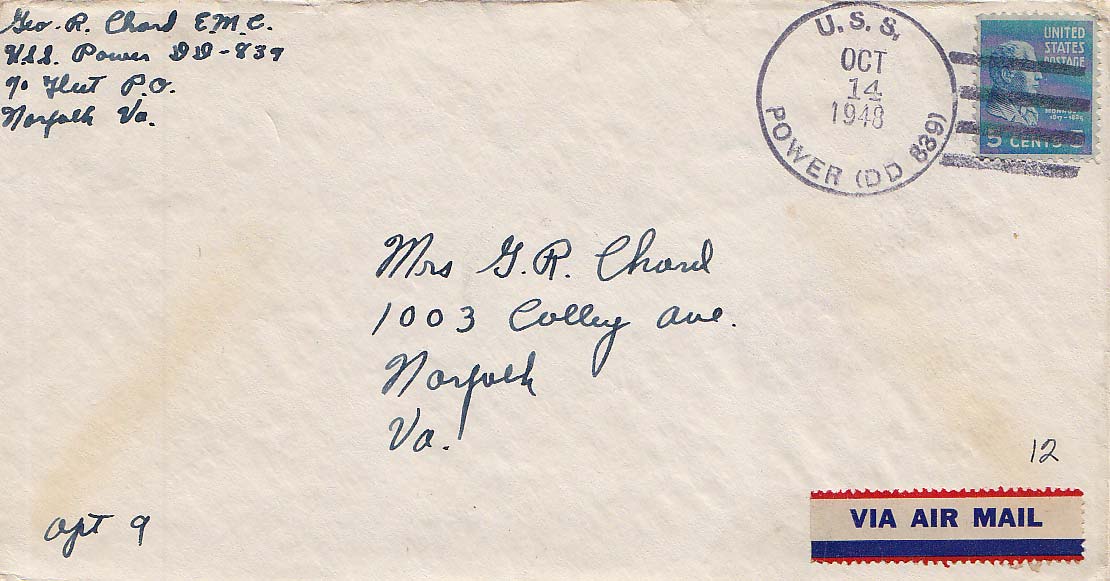 Geo. R. Chard E.M.C.
U.S.S. Power DD-839
℅ Fleet P.O.
Norfolk Va.
U.S.S.
OCT
14
1948
POWER (DD 839)
UNITED
STATES
POSTAGE
MONROE
1817-1825
5 CENTS 5
Mrs G.R. Chard
1003 Colley Ave.
Norfolk
Va.
12
Apt 9
VIA AIR MAIL